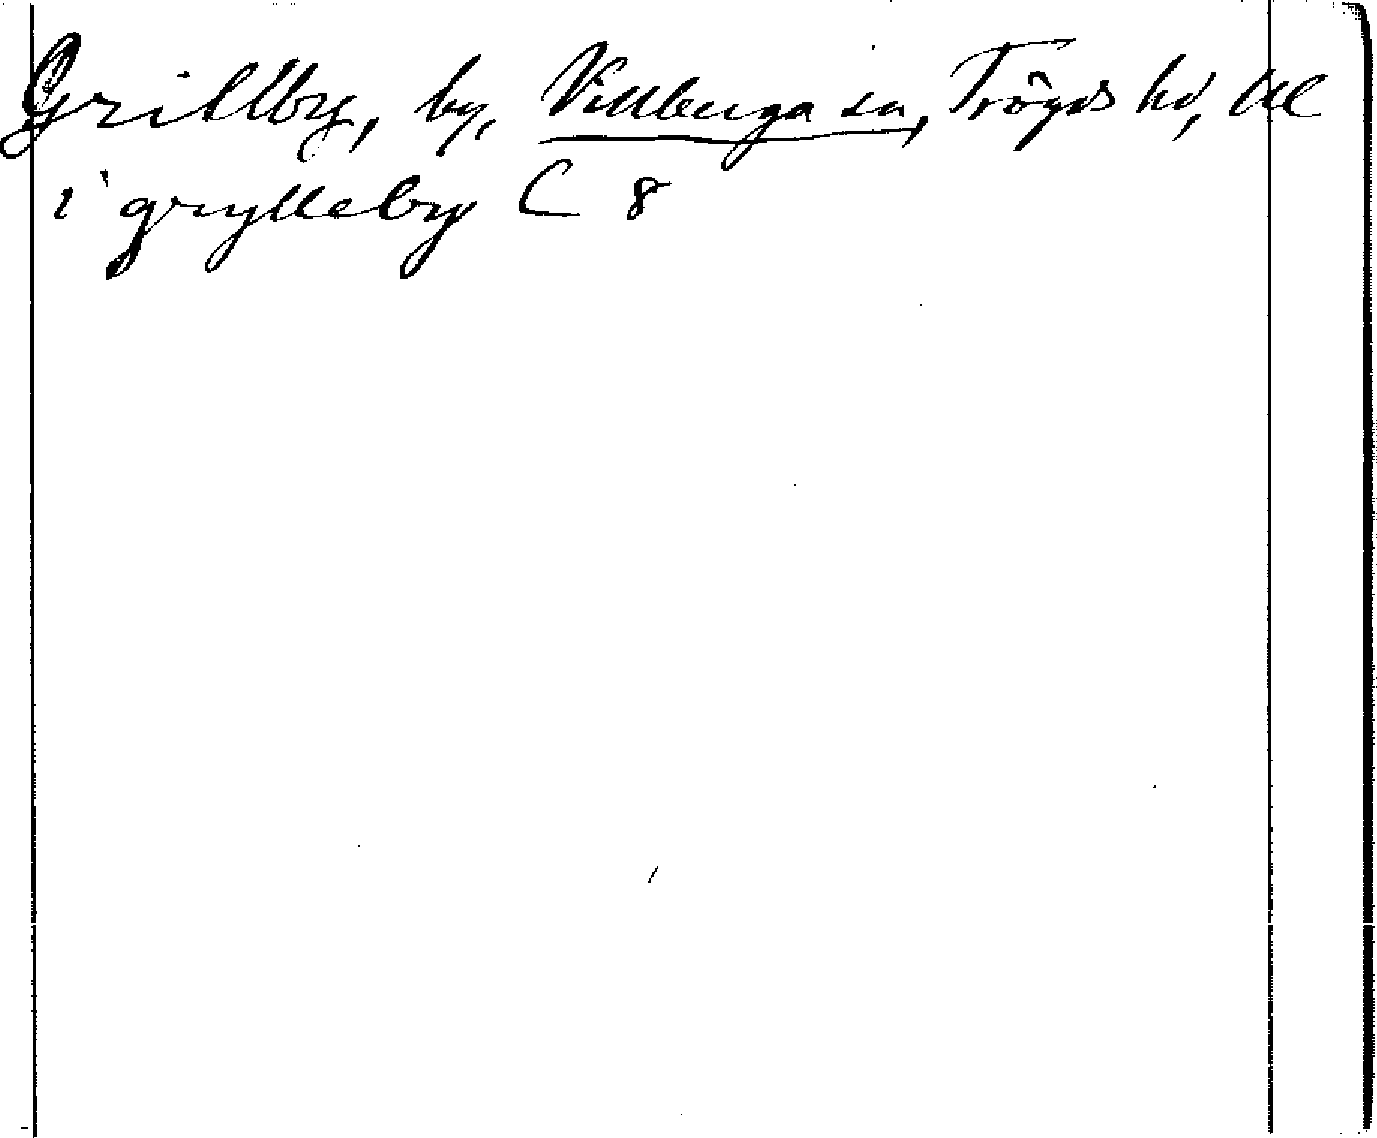 Grillby, by, Villberga sn, Trögds hd, Ul
i grylleby C 8